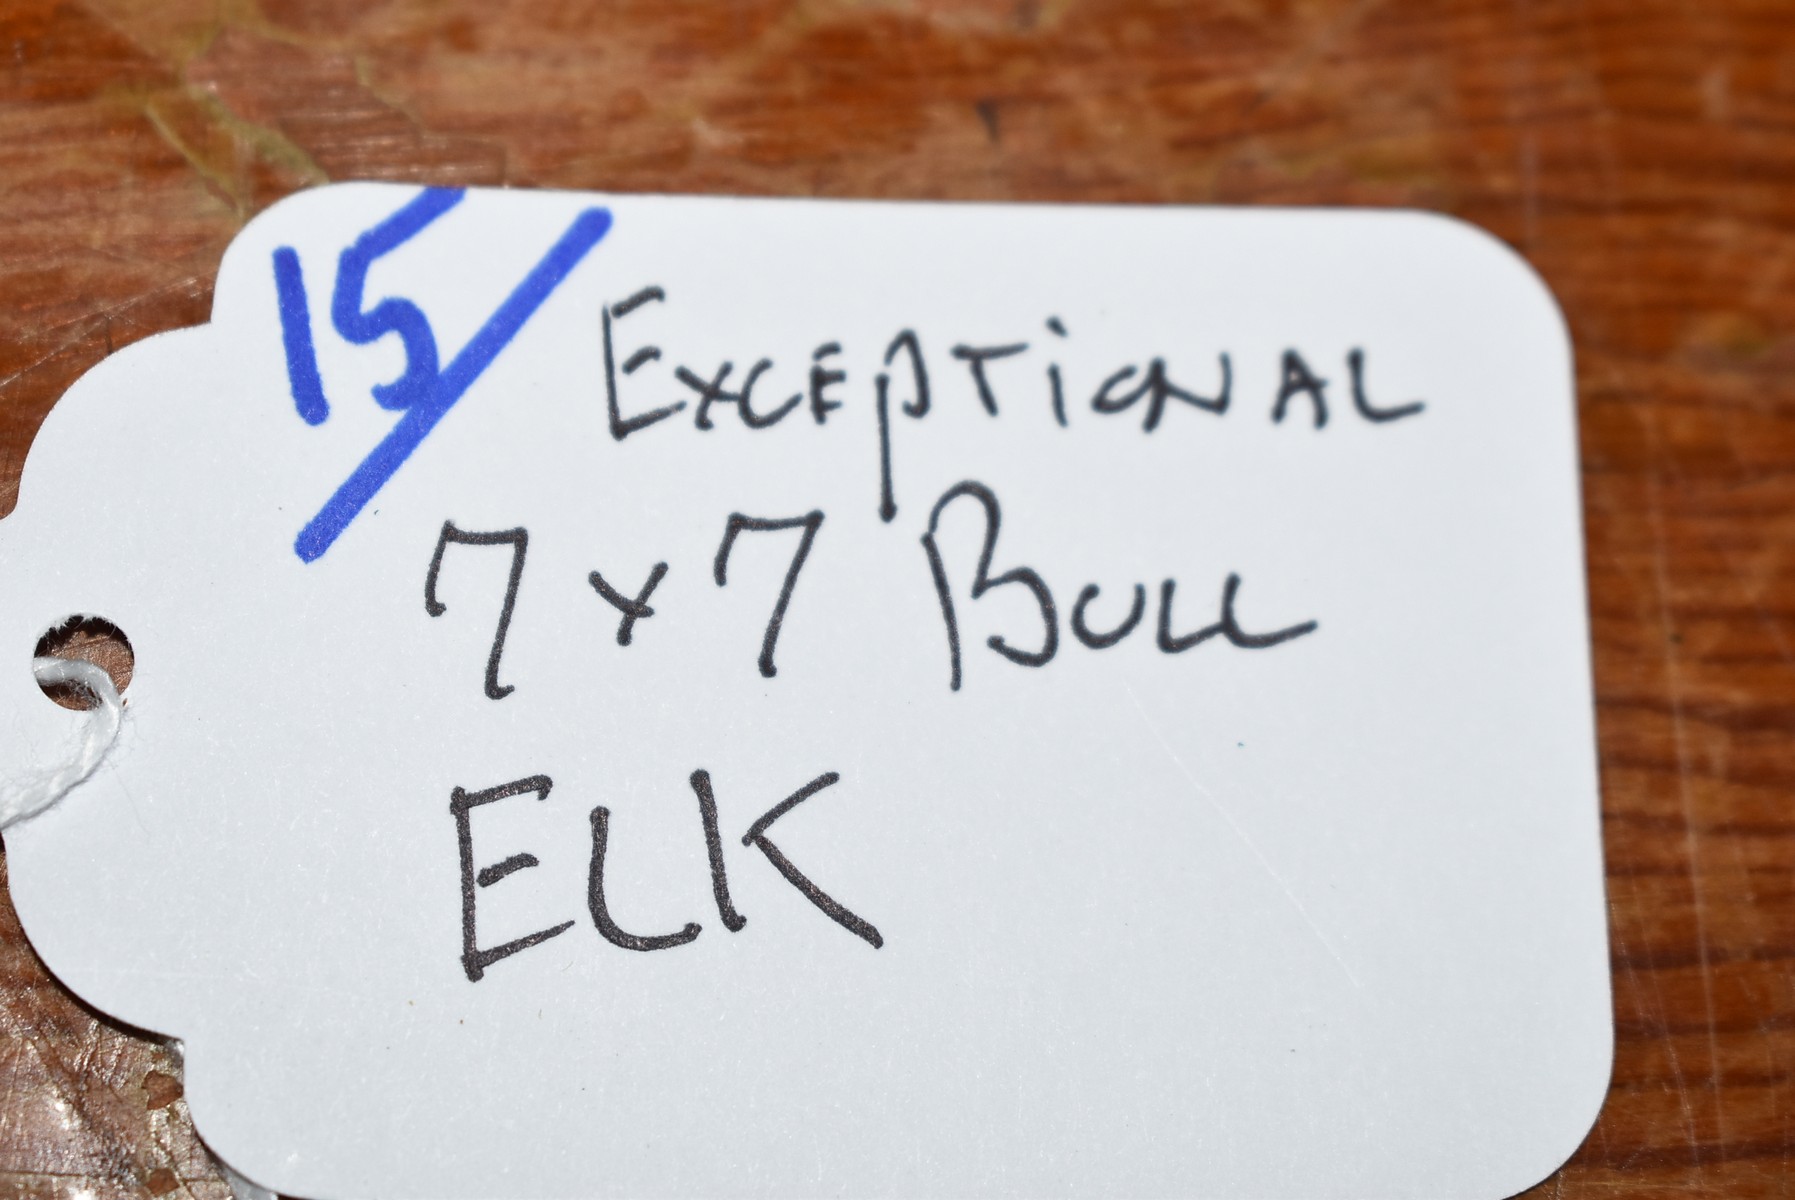 15/ Exceptional
7x7 Bull
ELK